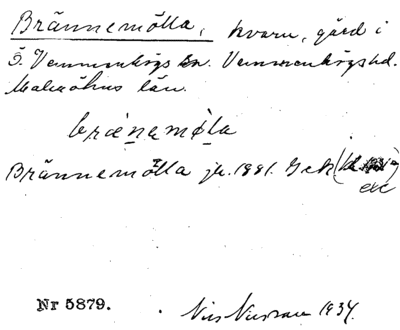 Brännemölla, kvarn, gård i
Ö. Vemmenhögs sn. Vemmenhögs hd.
Malmöhus län.
brænemøla
Brännemölla jb. 1881. Gek
etc
Nr 5879.
Nils Nilsson 1934.